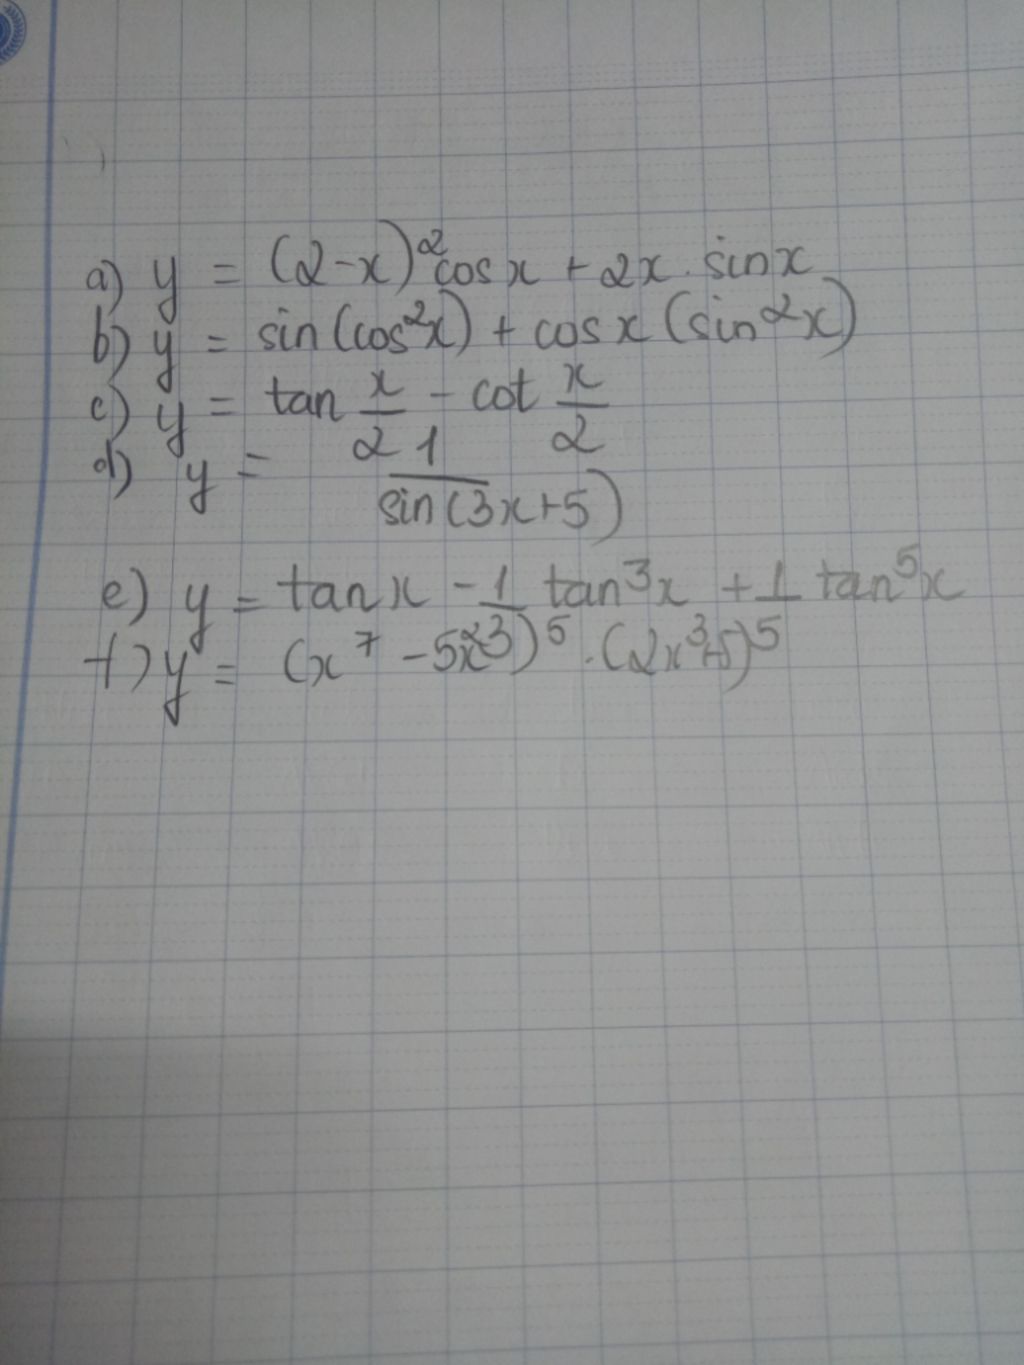 a) y = (2-x)²cosx + 2x.sinx
b) y = sin(cos²x) + cosx(sin²x)
c) y = tan x/2 - cot x/2
d) y = 1/sin(3x+5)
e) y = tanx - 1/3 tan³x + 1/ tan⁵x
f) y = (x⁷ - 5x²)⁵.(2x³+5)⁵